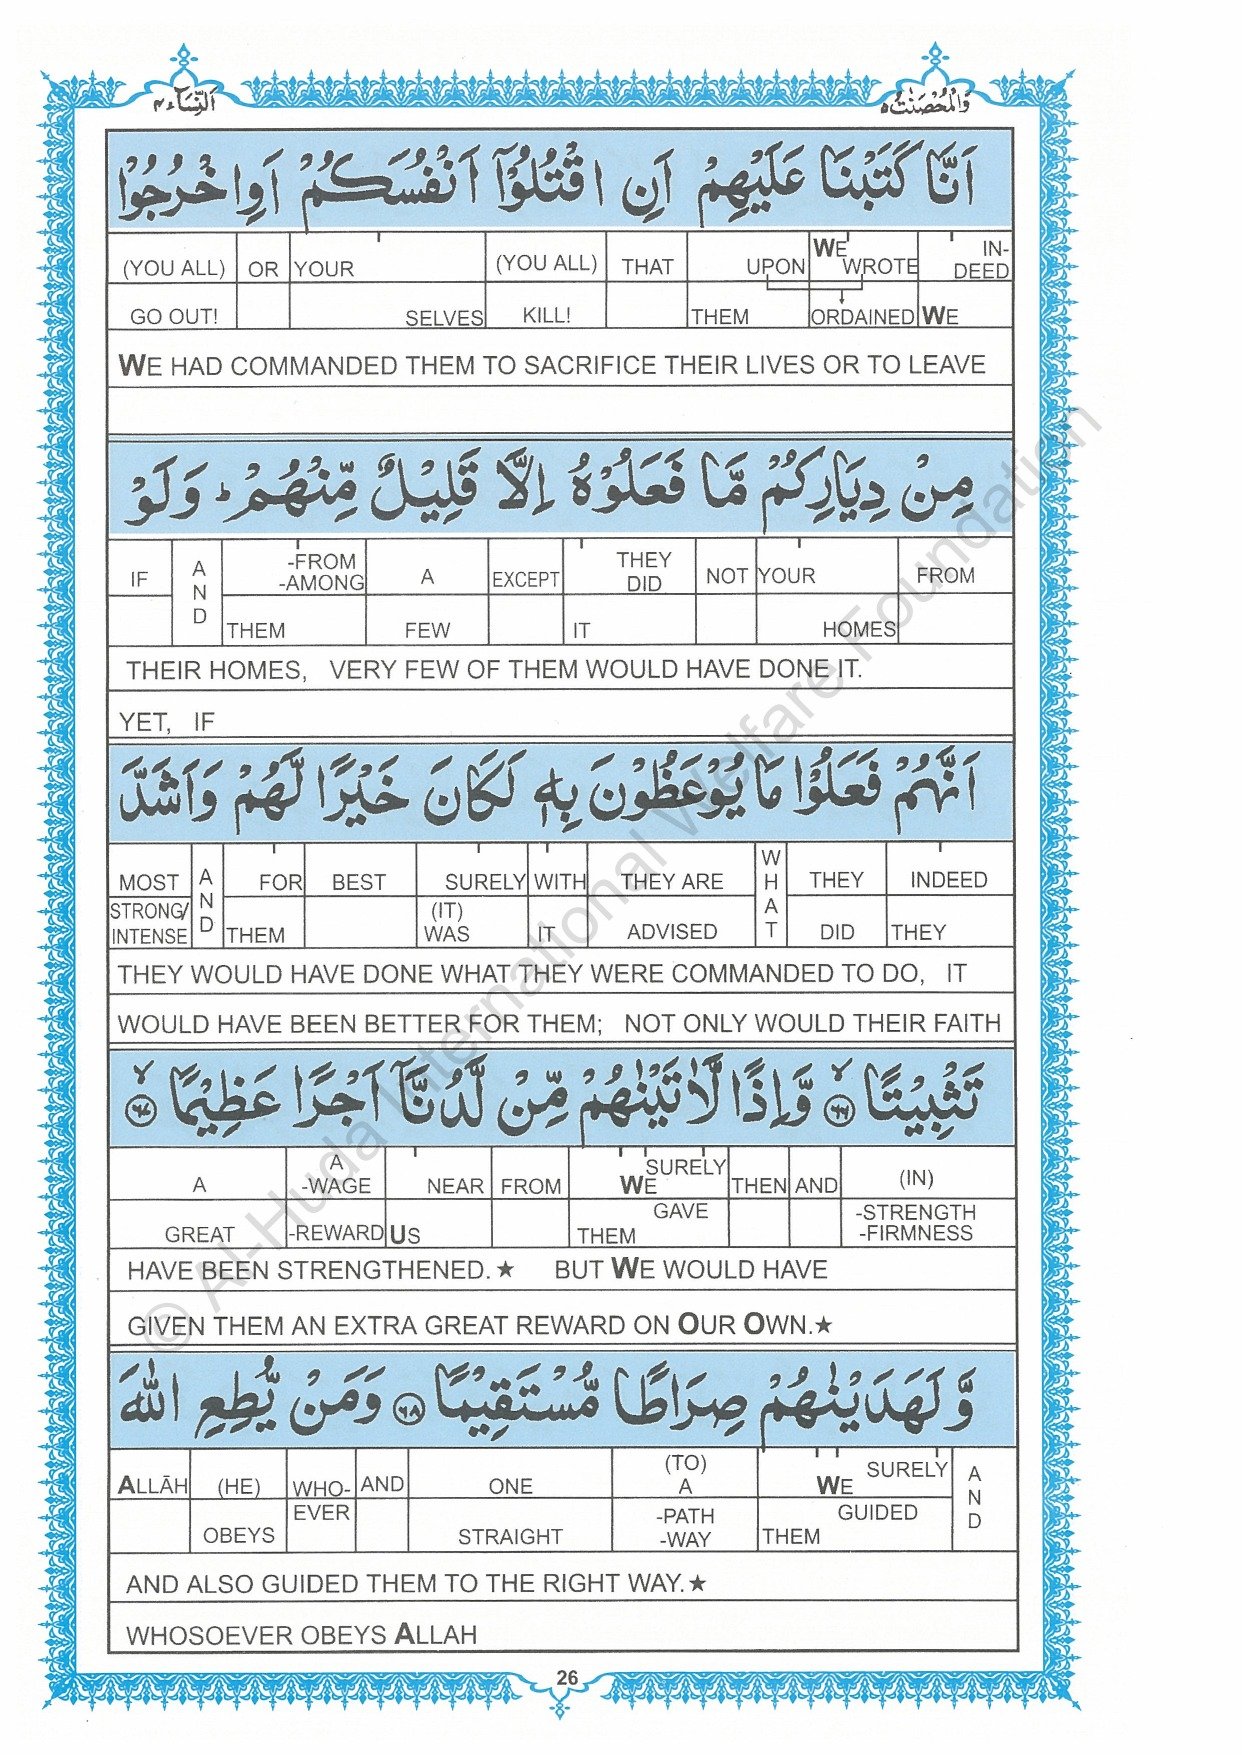 وَالْمُحْصَنٰتُ ۵
اَلنِّسَآء ۴
اَنَّا كَتَبْنَا عَلَيْهِمْ اَنِ اقْتُلُوْٓا اَنْفُسَكُمْ اَوِ اخْرُجُوْا
(YOU ALL) OR YOUR (YOU ALL) THAT UPON WE WROTE IN-DEED
GO OUT! SELVES KILL! THEM ORDAINED WE
WE HAD COMMANDED THEM TO SACRIFICE THEIR LIVES OR TO LEAVE
مِنْ دِيَارِكُمْ مَّا فَعَلُوْهُ اِلَّا قَلِيْلٌ مِّنْهُمْ ؕ وَلَوْ
IF AND -FROM -AMONG A EXCEPT THEY DID NOT YOUR FROM
THEM FEW IT HOMES
THEIR HOMES, VERY FEW OF THEM WOULD HAVE DONE IT.
YET, IF
اَنَّهُمْ فَعَلُوْا مَا يُوْعَظُوْنَ بِهٖ لَكَانَ خَيْرًا لَّهُمْ وَاَشَدَّ
MOST AND FOR BEST SURELY WITH THEY ARE WHAT THEY INDEED
STRONG/ INTENSE THEM (IT) WAS IT ADVISED DID THEY
THEY WOULD HAVE DONE WHAT THEY WERE COMMANDED TO DO, IT
WOULD HAVE BEEN BETTER FOR THEM; NOT ONLY WOULD THEIR FAITH
تَثْبِيْتًا ۙ﴿۶۶﴾ وَّاِذًا لَّاٰتَيْنٰهُمْ مِّنْ لَّدُنَّآ اَجْرًا عَظِيْمًا ۙ﴿۶۷﴾
A A -WAGE NEAR FROM SURELY WE THEN AND (IN)
GREAT -REWARD US GAVE THEM -STRENGTH -FIRMNESS
HAVE BEEN STRENGTHENED.★ BUT WE WOULD HAVE
GIVEN THEM AN EXTRA GREAT REWARD ON OUR OWN.★
وَّلَهَدَيْنٰهُمْ صِرَاطًا مُّسْتَقِيْمًا ﴿۶۸﴾ وَمَنْ يُّطِعِ اللّٰهَ
ALLĀH (HE) WHO- AND ONE (TO) A SURELY WE AND
OBEYS EVER STRAIGHT -PATH -WAY GUIDED THEM
AND ALSO GUIDED THEM TO THE RIGHT WAY.★
WHOSOEVER OBEYS ALLAH
26
© Al-Huda International Welfare Foundation